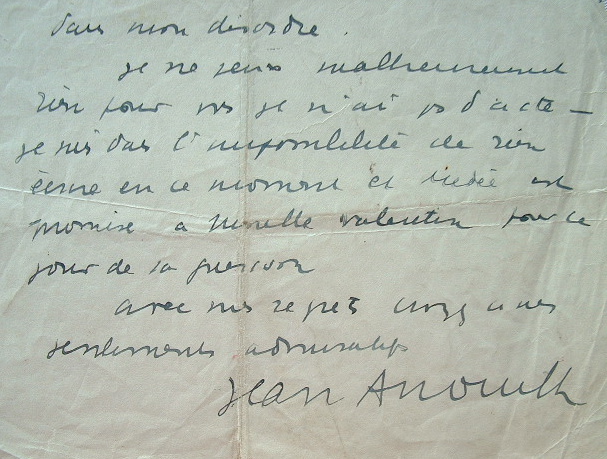 dans mon désordre.
Je ne peux malheureusement
rien pour vous je n'ai pas d'acte –
je suis dans l'impossibilité de rien
écrire en ce moment et Médée est
promise a Mireille Valentin pour le
jour de sa guérison
avec mes regrets croyez a mes
sentiments admiratifs
Jean Anouilh